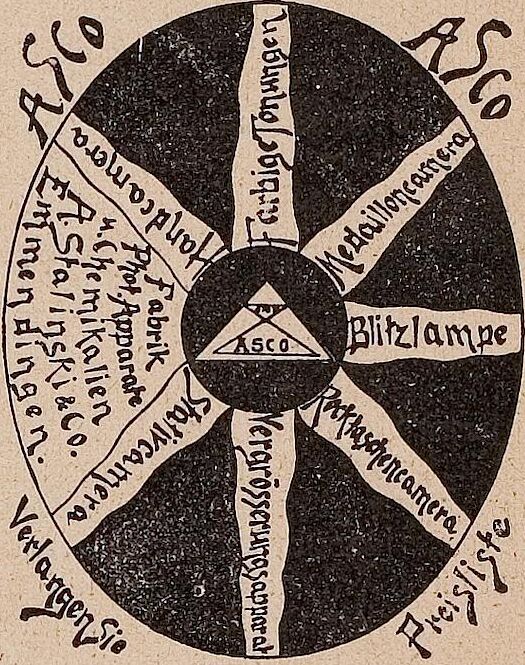 ASCO
ASCO
Handcamera
Farbige Tonungen
Medailloncamera
Blitzlampe
Rocktaschencamera
Vergrösserungsapparat
Stativcamera
Fabrik
Phot Apparate
u. Chemikalien
A. Stalinski & Co.
Emmendingen.
ASCO
Verlangen Sie
Preisliste